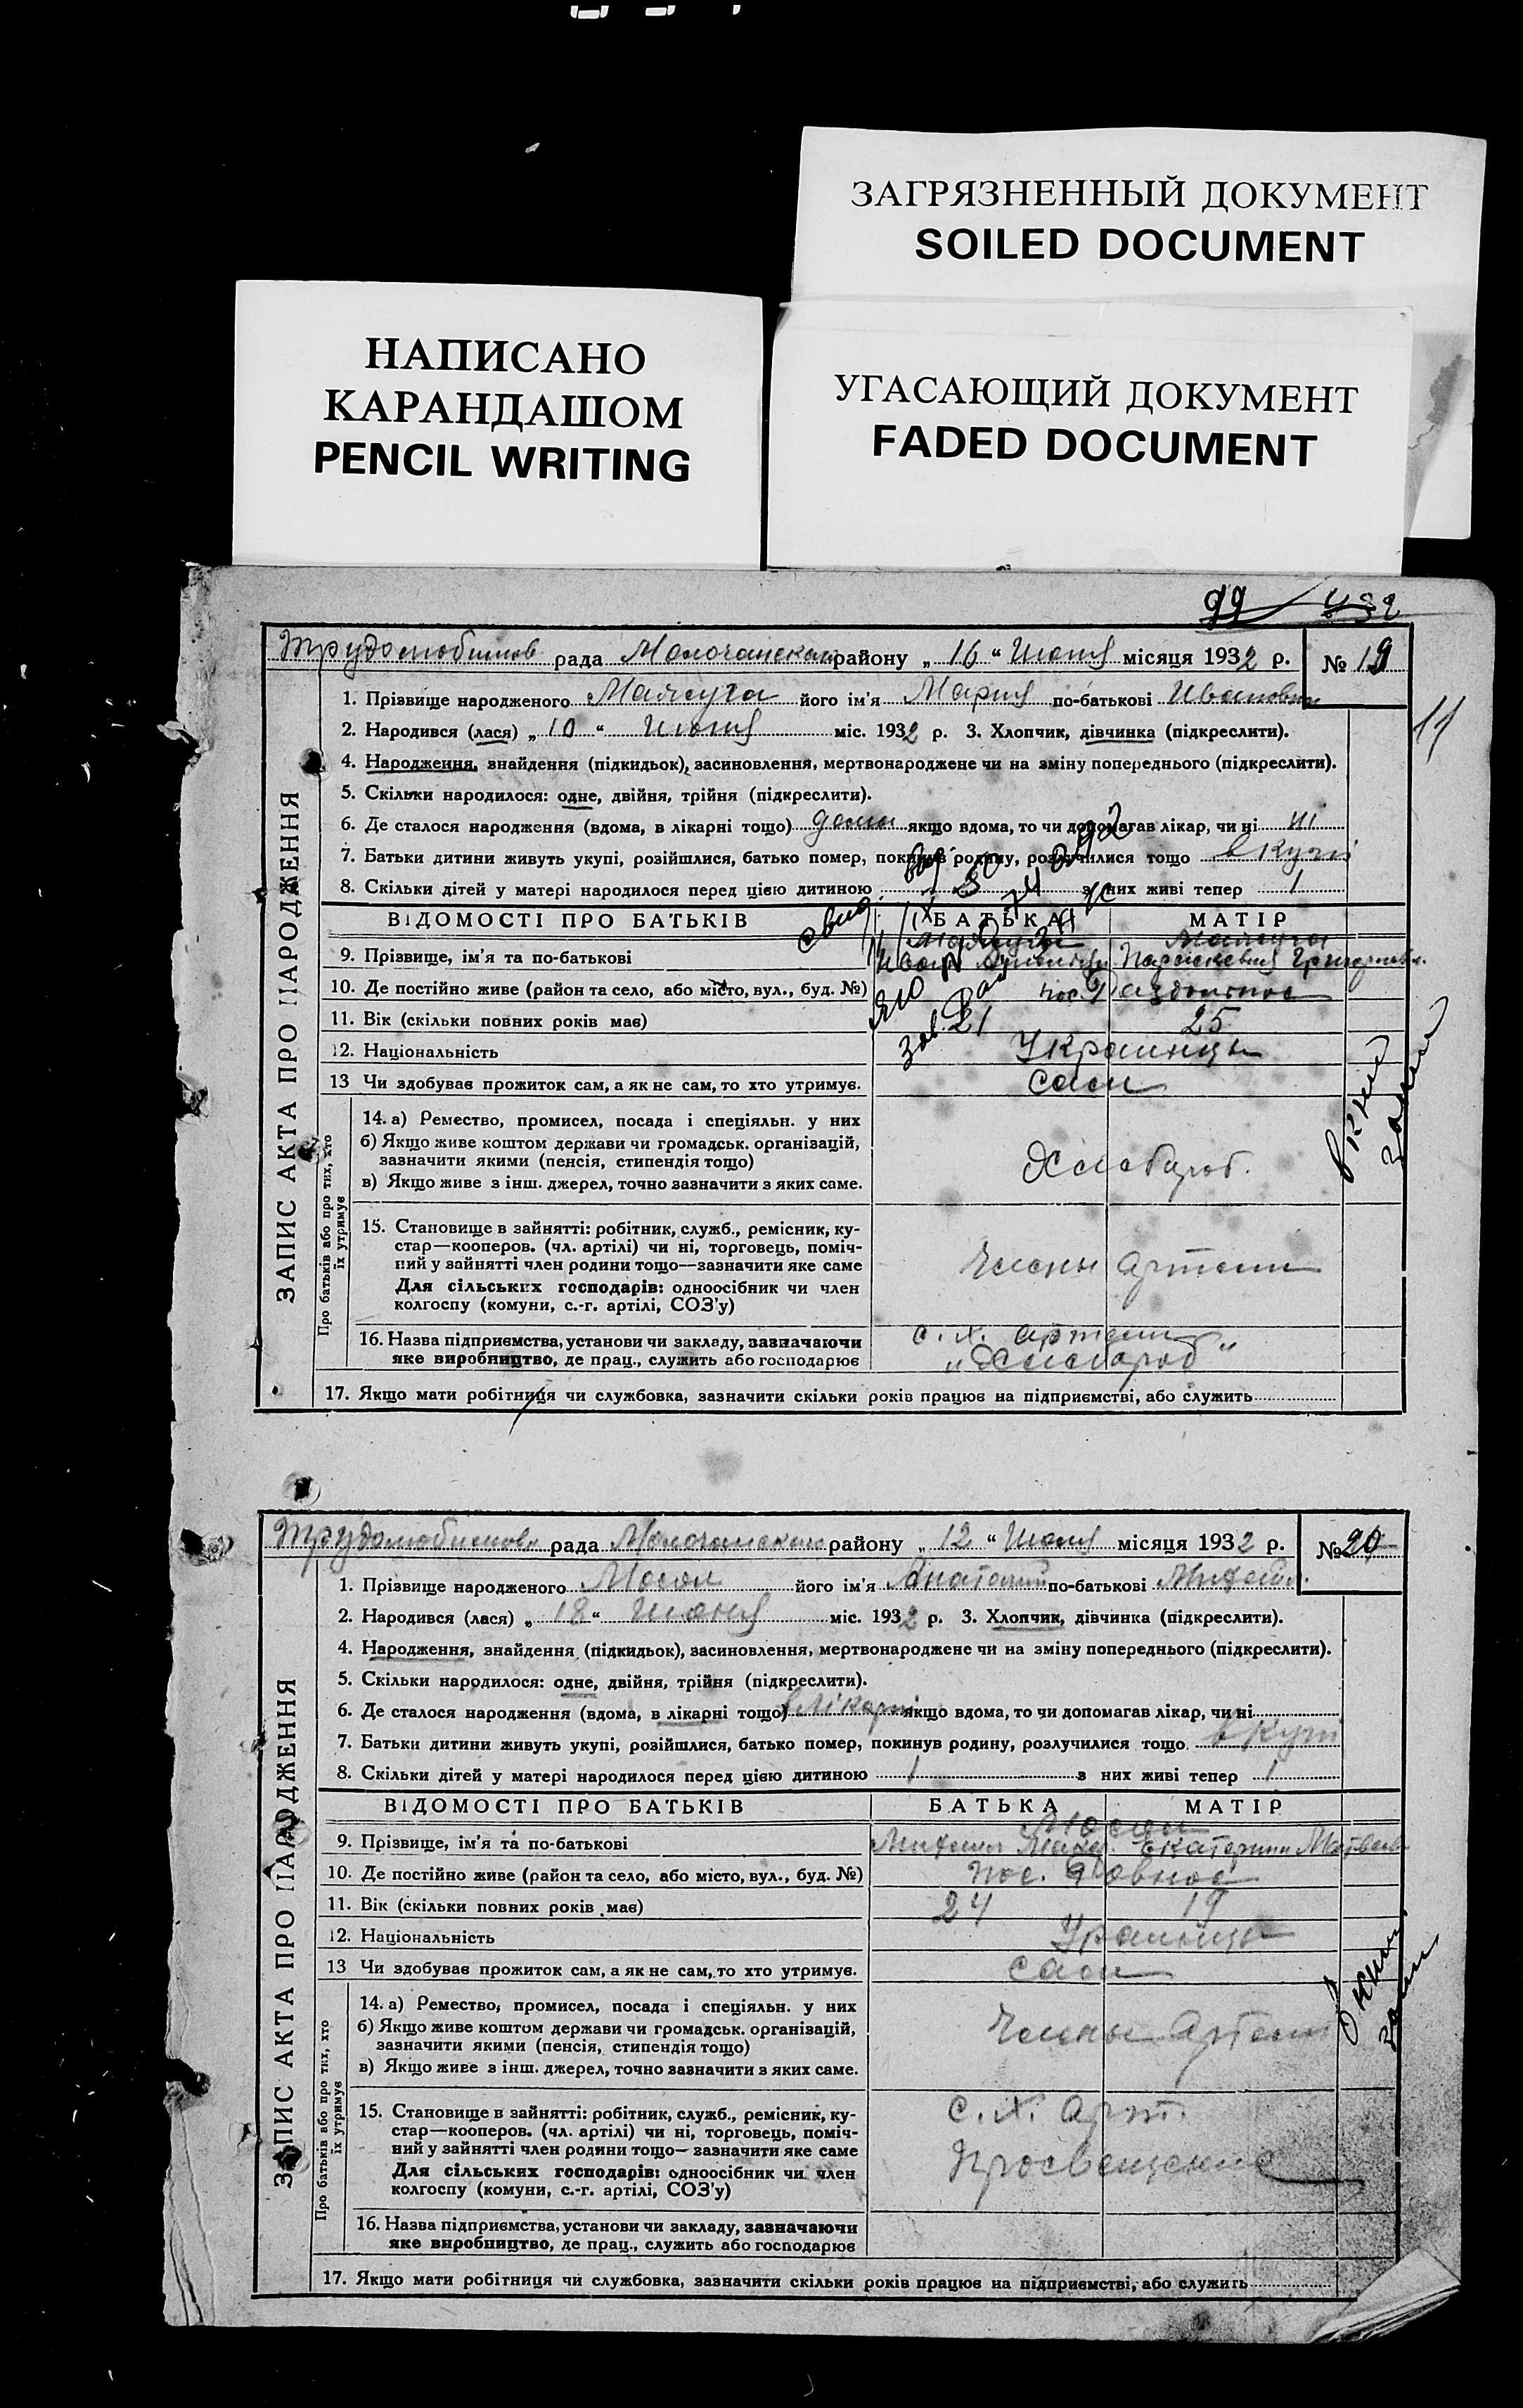 ЗАГРЯЗНЕННЫЙ ДОКУМЕНТ
SOILED DOCUMENT
НАПИСАНО
КАРАНДАШОМ
PENCIL WRITING
УГАСАЮЩИЙ ДОКУМЕНТ
FADED DOCUMENT
99
рада Молочанском району „ 16 “ Июня місяця 1932 р. № 19
1. Прізвище народженого його ім'я Мария по-батькові Ивановна
11
2. Народився (лася) „ 10 “ Июня міс. 1932 р. 3. Хлопчик, дівчинка (підкреслити).
4. Народження, знайдення (підкидьок), засиновлення, мертвонароджене чи на зміну попереднього (підкреслити).
5. Скільки народилося: одне, двійня, трійня (підкреслити).
6. Де сталося народження (вдома, в лікарні тощо) дома якщо вдома, то чи допомагав лікар, чи ні ні
7. Батьки дитини живуть укупі, розійшлися, батько помер, покинув родину, розлучилися тощо вкупі
8. Скільки дітей у матері народилося перед цією дитиною з них живі тепер 1
ВІДОМОСТІ ПРО БАТЬКІВ БАТЬКА МАТІР
9. Прізвище, ім'я та по-батькові Иван Параскевия Григорьевн.
10. Де постійно живе (район та село, або місто, вул., буд. №) пос. Раздольное
11. Вік (скільки повних років має) 21 25
12. Національність Украинцы
13 Чи здобував прожиток сам, а як не сам, то хто утримує. сами
ЗАПИС АКТА ПРО НАРОДЖЕННЯ
Про батьків або про тих, хто їх утримує
14. а) Ремество, промисел, посада і спеціяльн. у них
б) Якщо живе коштом держави чи громадськ. організацій,
зазначити якими (пенсія, стипендія тощо)
Хлебороб.
в) Якщо живе з інш. джерел, точно зазначити з яких саме.
15. Становище в зайнятті: робітник, служб., ремісник, ку-
стар—кооперов. (чл. артілі) чи ні, торговець, поміч-
ний у зайнятті член родини тощо—зазначити яке саме
Члены Артели
Для сільських господарів: одноосібник чи член
колгоспу (комуни, с.-г. артілі, СОЗ'у)
16. Назва підприємства, установи чи закладу, зазначаючи с. х. артели
яке виробництво, де прац., служить або господарює „Хлебороб“
17. Якщо мати робітниця чи службовка, зазначити скільки років працює на підприємстві, або служить
рада Молочанском району „ 12 “ Июля місяця 1932 р. № 20
1. Прізвище народженого його ім'я Анатолий по-батькові Михайл.
2. Народився (лася) „ 18 “ Июня міс. 1932 р. 3. Хлопчик, дівчинка (підкреслити).
4. Народження, знайдення (підкидьок), засиновлення, мертвонароджене чи на зміну попереднього (підкреслити).
5. Скільки народилося: одне, двійня, трійня (підкреслити).
6. Де сталося народження (вдома, в лікарні тощо) в лікарні якщо вдома, то чи допомагав лікар, чи ні
7. Батьки дитини живуть укупі, розійшлися, батько помер, покинув родину, розлучилися тощо. вкупі
8. Скільки дітей у матері народилося перед цією дитиною 1 з них живі тепер 1
ВІДОМОСТІ ПРО БАТЬКІВ БАТЬКА МАТІР
9. Прізвище, ім'я та по-батькові Михаил Екатерина Матвеев
10. Де постійно живе (район та село, або місто, вул., буд. №) пос. Ровное
11. Вік (скільки повних років має) 24 19
12. Національність
13 Чи здобував прожиток сам, а як не сам, то хто утримує. сами
ЗАПИС АКТА ПРО НАРОДЖЕННЯ
Про батьків або про тих, хто їх утримує
14. а) Ремество, промисел, посада і спеціяльн. у них
б) Якщо живе коштом держави чи громадськ. організацій,
зазначити якими (пенсія, стипендія тощо)
Члены Артели
в) Якщо живе з інш. джерел, точно зазначити з яких саме.
15. Становище в зайнятті: робітник, служб., ремісник, ку- с. х. арт.
стар—кооперов. (чл. артілі) чи ні, торговець, поміч-
ний у зайнятті член родини тощо—зазначити яке саме Просвещение
Для сільських господарів: одноосібник чи член
колгоспу (комуни, с.-г. артілі, СОЗ'у)
16. Назва підприємства, установи чи закладу, зазначаючи
яке виробництво, де прац., служить або господарює
17. Якщо мати робітниця чи службовка, зазначити скільки років працює на підприємстві, або служить